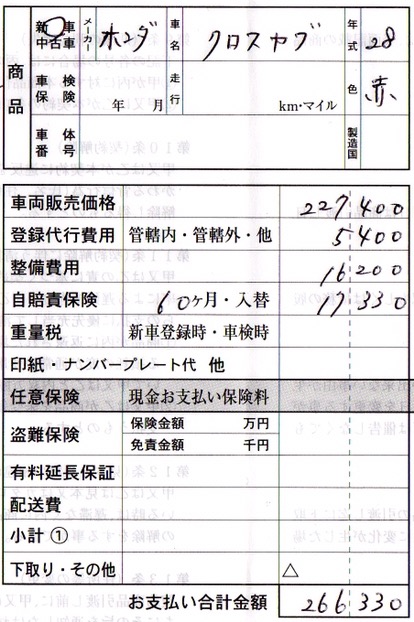 商品
新車 中古車 メーカー ホンダ 車名 クロスカブ 年式 28
車検 保険 年 月 走行 km・マイル 色 赤
車体 番号 製造国
車両販売価格 227,400
登録代行費用 管轄内・管轄外・他 5400
整備費用 16200
自賠責保険 60ヶ月・入替 17330
重量税 新車登録時・車検時
印紙・ナンバープレート代 他
任意保険 現金お支払い保険料
盗難保険 保険金額 万円
免責金額 千円
有料延長保証
配送費
小計①
下取り・その他 △
お支払い合計金額 266330